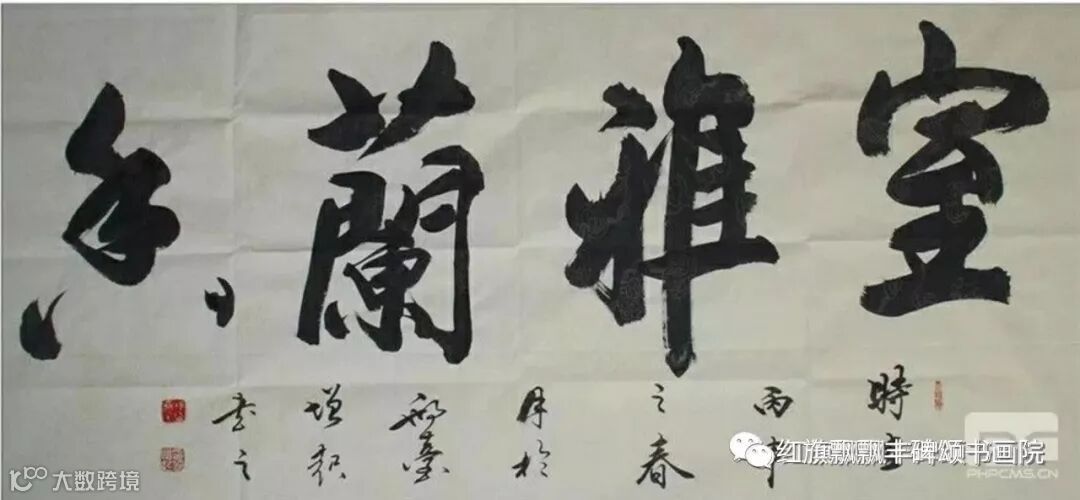 室雅蘭香
時在
丙申
之春
月於
邢臺
增
書之
红旗飘飘丰碑颂书画院
大数跨境
PHPCMS.CN